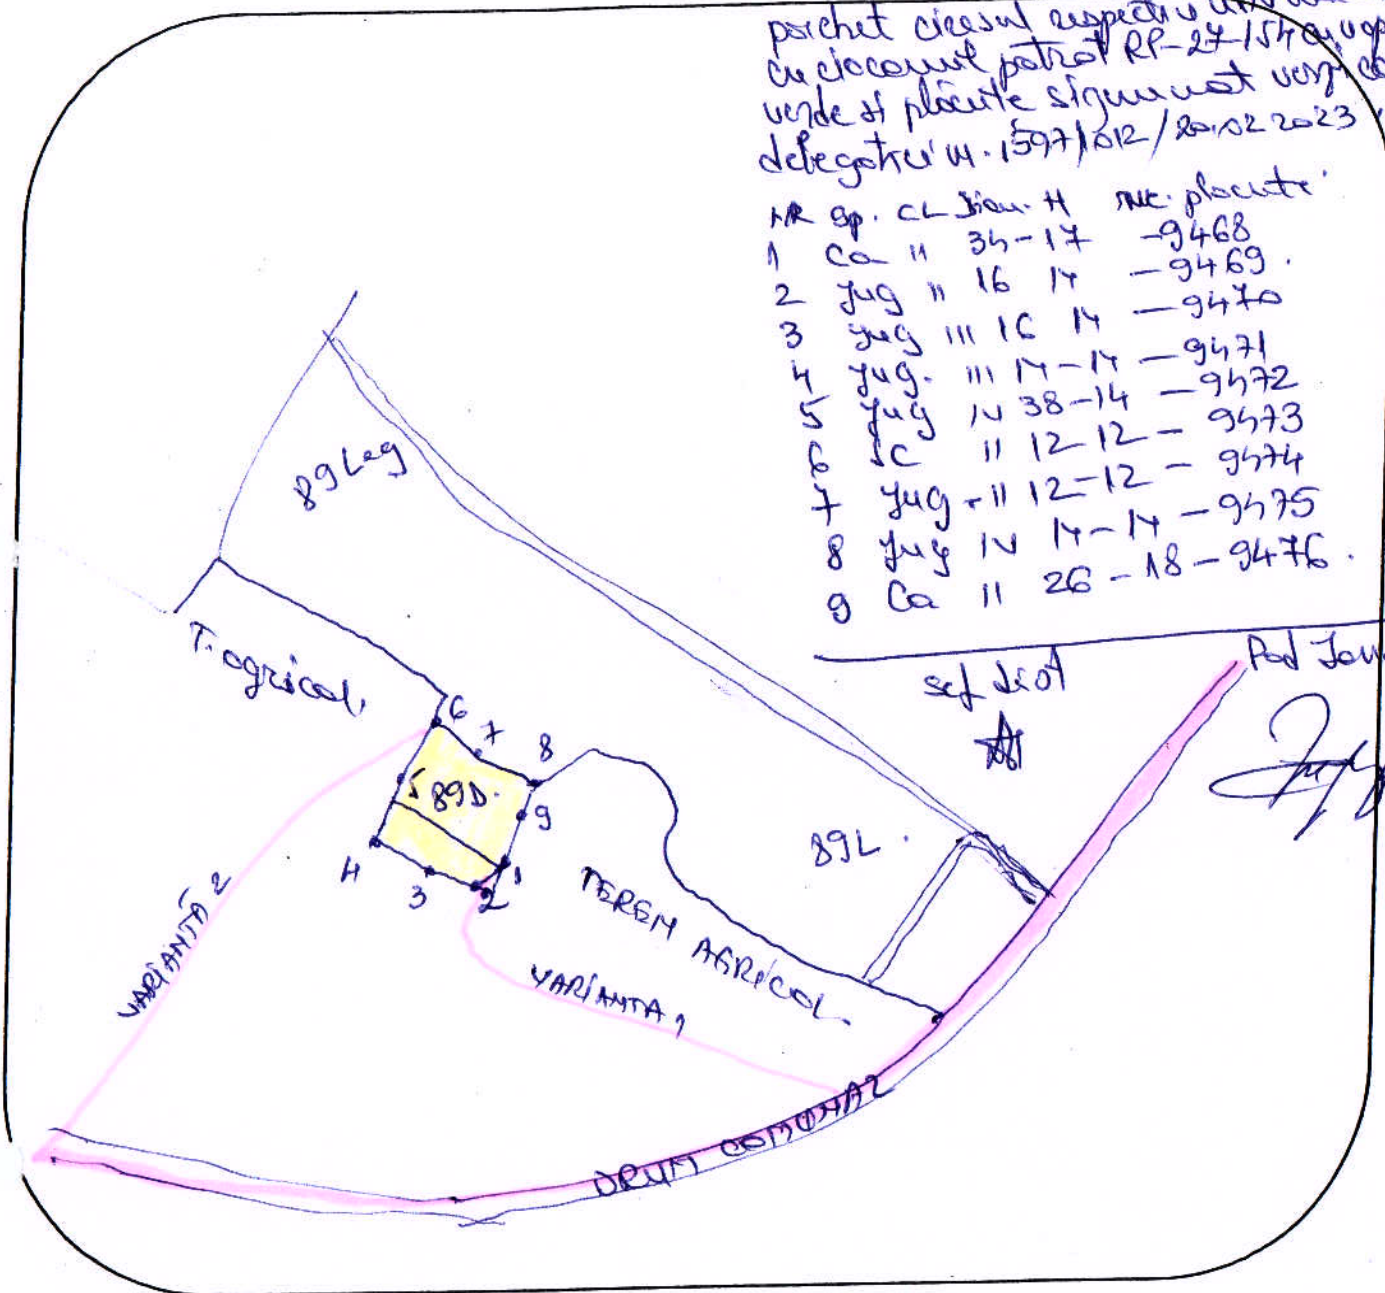 parchet cireșul respectiv
cu ciocanul patrat RP-27-154
verde si plăcute
delegatiei nr. 1597/012/20.02 2023
NR sp. CL Diam. H NR. placute
1 Ca II 34-17 -9468
2 Jug II 16 14 -9469.
3 Jug III 16 14 -9470
4 Jug. III 14-14 -9471
5 Jug IV 38-14 -9472
6 SC II 12-12 - 9473
7 Jug - II 12-12 - 9474
8 Jug IV 14-14 -9475
9 Ca II 26 -18 -9476.
sef
Pod
89 Leg
T. agricol.
6
7
8
5 89D.
9
4
3
2
1
89L.
TEREN AGRICOL.
VARIANTĂ 2
VARIANTA 1
DRUM COMUNAL